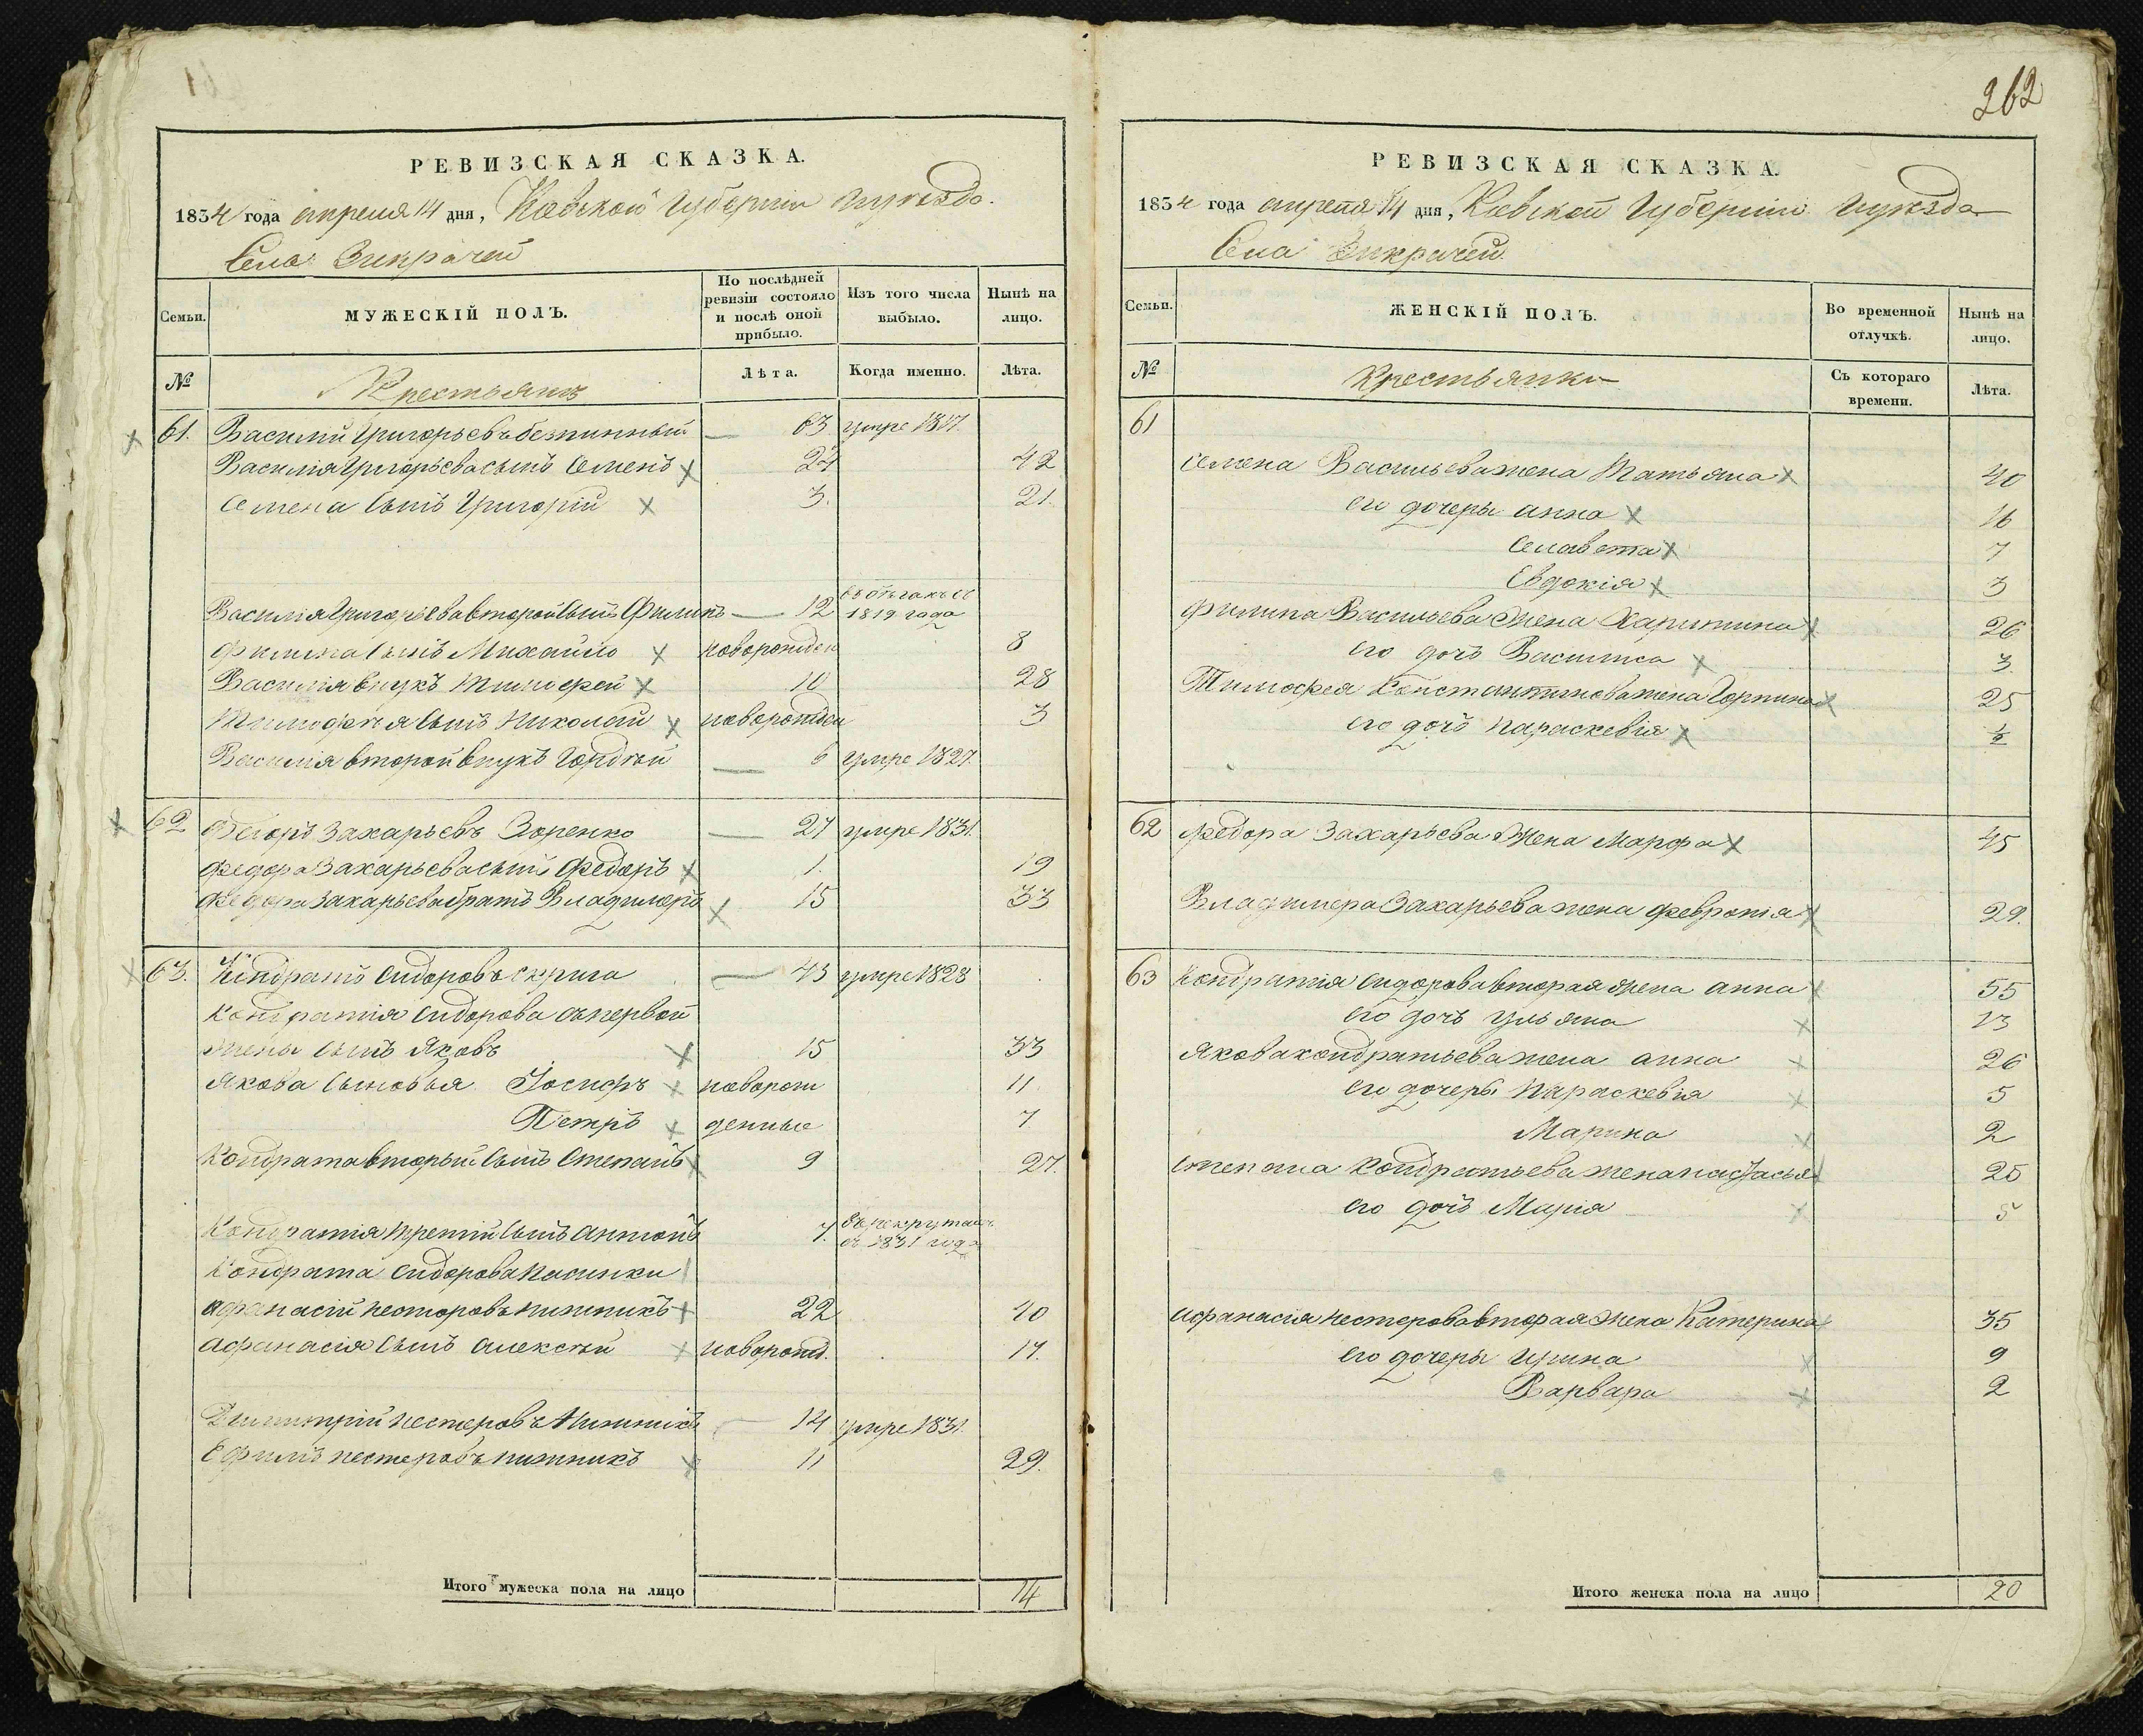 262
РЕВИЗСКАЯ СКАЗКА.
1834 года апреля 14 дня, Киевской Губернии и уезда
Села Зикрачей
Семьи.
МУЖЕСКІЙ ПОЛЪ.
По послѣдней ревизіи состояло и послѣ оной прибыло.
Изъ того числа выбыло.
Нынѣ на лицо.
№
Крестьянъ
Лѣта.
Когда именно.
Лѣта.
61. Василий Григорьевъ 63 умре 1817.
Василія Григорьева сынъ Семенъ 24 42
Семена сынъ Григорій 3. 21.
Василія Григорьева второй сынъ Филипъ 12 въ бѣгахъ съ 1819 года
Филипа сынъ Михайло новорожден 8
Василія внукъ Тимофей 10 28
Тимофея сынъ Николай новорожден 3
Василія второй внукъ Гордѣй 6 умре 1827.
62 Федоръ Захарьевъ Зоренко 27 умре 1831.
Федора Захарьева сынъ Федоръ 1. 19
Федора Захарьева братъ Владимеръ 15 33
63. Кондратъ Сидоровъ 43 умре 1828
Кондратія Сидорова съ первой
жены сынъ Яковъ 15 33
Якова сыновья Іосифъ новорож 11.
Петръ денные 7
Кондрата вторый сынъ Степанъ 9 27.
Кондратія третій сынъ Антонъ 7. въ рекрутахъ съ 1831 года
Кондрата Сидорова пасынки
Афанасій Несторовъ Нижникъ 22 40
Афанасія сынъ Алексѣй новорожд. 17.
Димитрій Нестеровъ Нижникъ 14 умре 1831.
Ефимъ Нестеровъ Нижникъ 11 29.
Итого мужеска пола на лицо 14
РЕВИЗСКАЯ СКАЗКА.
1834 года апреля 14 дня, Киевской Губернии и уезда
Села Зикрачей
Семьи.
ЖЕНСКІЙ ПОЛЪ.
Во временной отлучкѣ.
Нынѣ на лицо.
№
Крестьянки
Съ котораго времени.
Лѣта.
61
Семена Васильева жена Татьяна 40
его дочеры Анна 16
Елисавета 7
Евдокія 3
Филипа Васильева жена Харитина 26
его дочь Василиса 3.
Тимофея Константинова жена Горпина 25
его дочь Параскевія ½
62 Федора Захарьева жена Марфа 45
Владимера Захарьева жена Февронія 29.
63 Кондратія Сидорова вторая жена Анна 55
его дочь Ульяна 13
Якова Кондратьева жена Анна 26
его дочеры Параскевія 5
Марина 2
Степана Кондратьева жена Настасья 25
его дочь Марія 5
Афанасія Нестерова вторая жена Катерина 35
его дочеры Ирина 9
Варвара 2
Итого женска пола на лицо 20